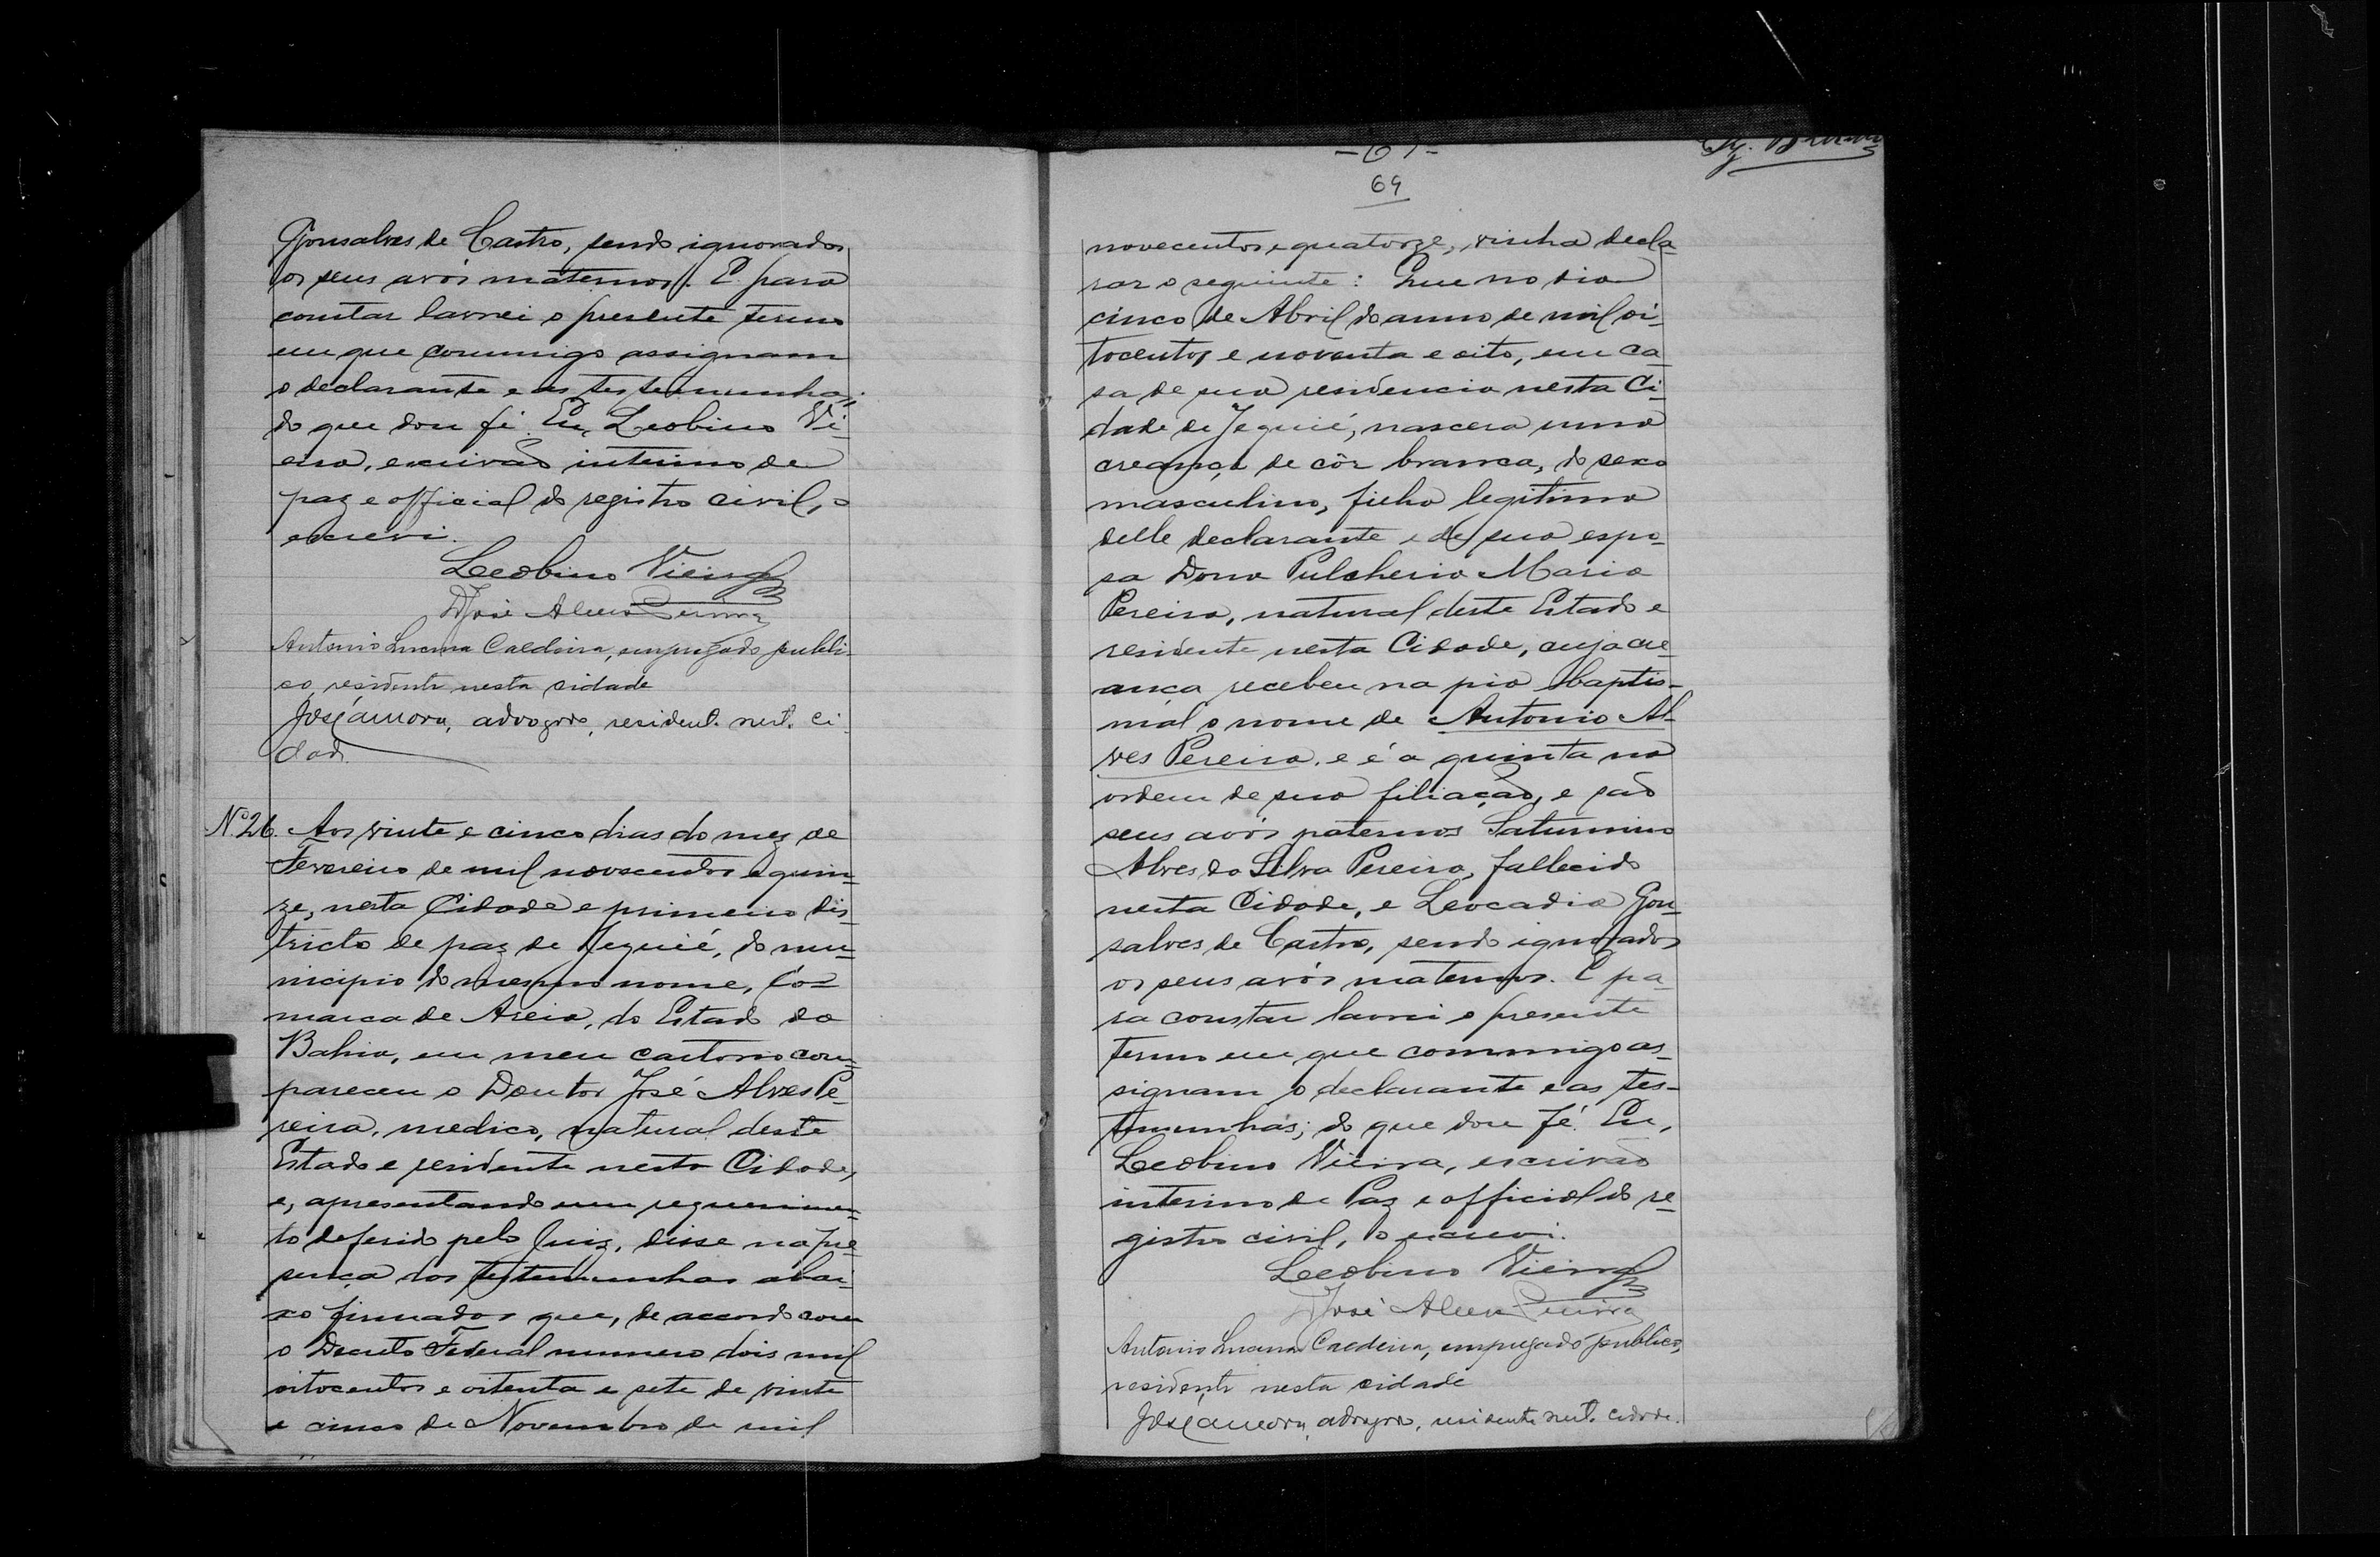 Gonsalves de Castro, sendo ignorados
os seus avós maternos. E para
constar lavrei o presente termo
em que commigo assignam
o declarante e as testemunhas;
do que dou fé. Eu, Leobino Vi-
eira, escrivão interino de
paz e official do registro civil, o
escrevi.
Leobino Vieira
José Alves Pereira
Antonio Lucena Caldeira, empregado publi-
co, residente nesta cidade
advogado, resident. nest. ci-
dad.
Nº 26. Aos vinte e cinco dias do mez de
Fevereiro de mil novecentos e quin-
ze, nesta Cidade e primeiro dis-
tricto de paz de Jequié, do mu-
nicipio do mesmo nome, Co-
marca de Areia, do Estado da
Bahia, em meu cartorio com-
pareceu o Doutor José Alves Pe-
reira, medico, natural deste
Estado e residente nesta Cidade,
e, apresentando um requerimen-
to deferido pelo Juiz, disse na pre-
sença das testemunhas abai-
xo firmadas que, de accordo com
o Decreto Federal numero dois mil
oitocentos e oitenta e sete de vinte
e cinco de Novembro de mil
69
novecentos e quatorze, vinha decla-
rar o seguinte: Que no dia
cinco de Abril do anno de mil oi-
tocentos e noventa e oito, em ca-
sa de sua residencia nesta Ci-
dade de Jequié, nascera uma
creança de côr branca, do sexo
masculino, filho legitimo
delle declarante e de sua espo-
sa Dona Pulcheria Maria
Pereira, natural deste Estado e
residente nesta Cidade, cuja cre-
ança recebeu na pia baptis-
mal o nome de Antonio Al-
ves Pereira, e é a quinta na
ordem de sua filiação, e são
seus avós paternos Saturnino
Alves da Silva Pereira, fallecido
nesta Cidade, e Leocadia Gon-
salves de Castro, sendo ignorados
os seus avós maternos. E pa-
ra constar lavrei o presente
termo em que commigo as-
signam o declarante e as tes-
temunhas; do que dou fé. Eu,
Leobino Vieira, escrivão
interino de Paz e official do re-
gistro civil, o escrevi.
Leobino Vieira
José Alves Pereira
Antonio Lucena Caldeira, empregado publico,
residente nesta cidade
advogado, residente nest. cidade.